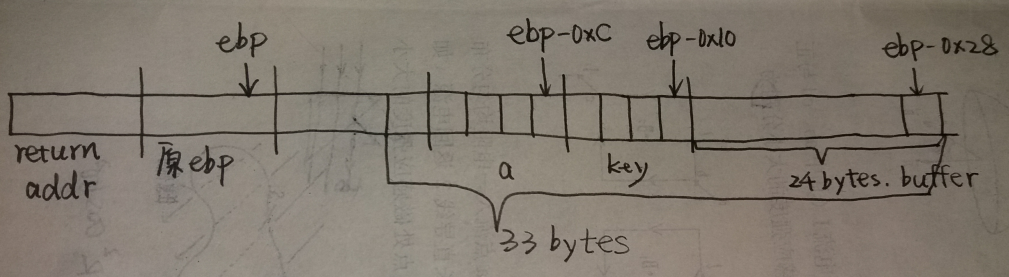 ebp
ebp-0xC
ebp-0x10
ebp-0x28
return
addr
原ebp
a
key
24 bytes. buffer
33 bytes